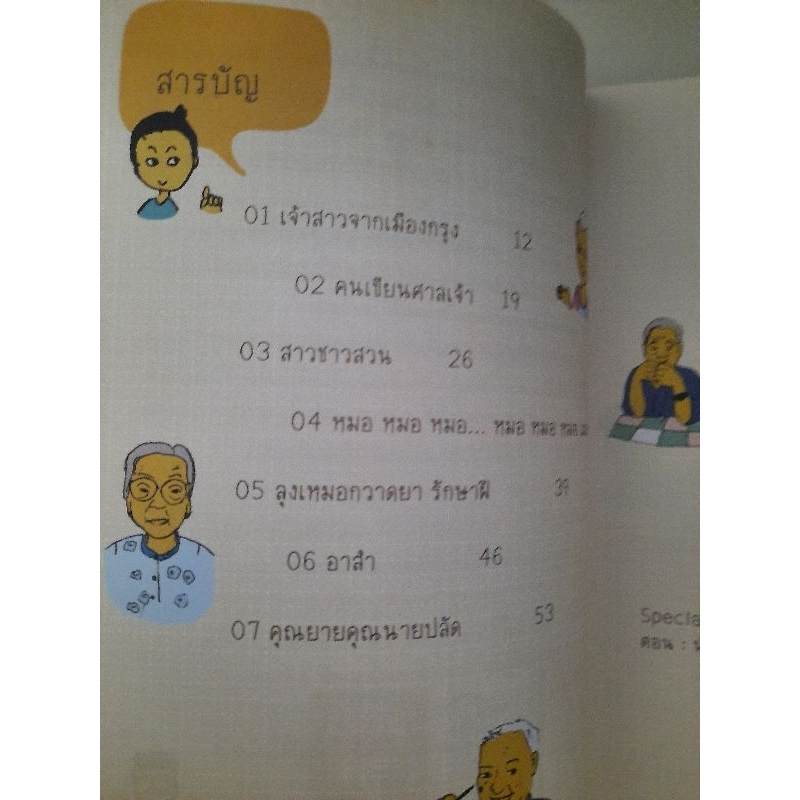 สารบัญ
01 เจ้าสาวจากเมืองกรุง 12
02 คนเขียนศาลเจ้า 19
03 สาวชาวสวน 26
04 หมอ หมอ หมอ... หมอ หมอ หมอ
05 ลุงเหมอกวาดยา รักษาฝี 39
06 อาสำ 46
07 คุณยายคุณนายปลัด 53
ตอน :